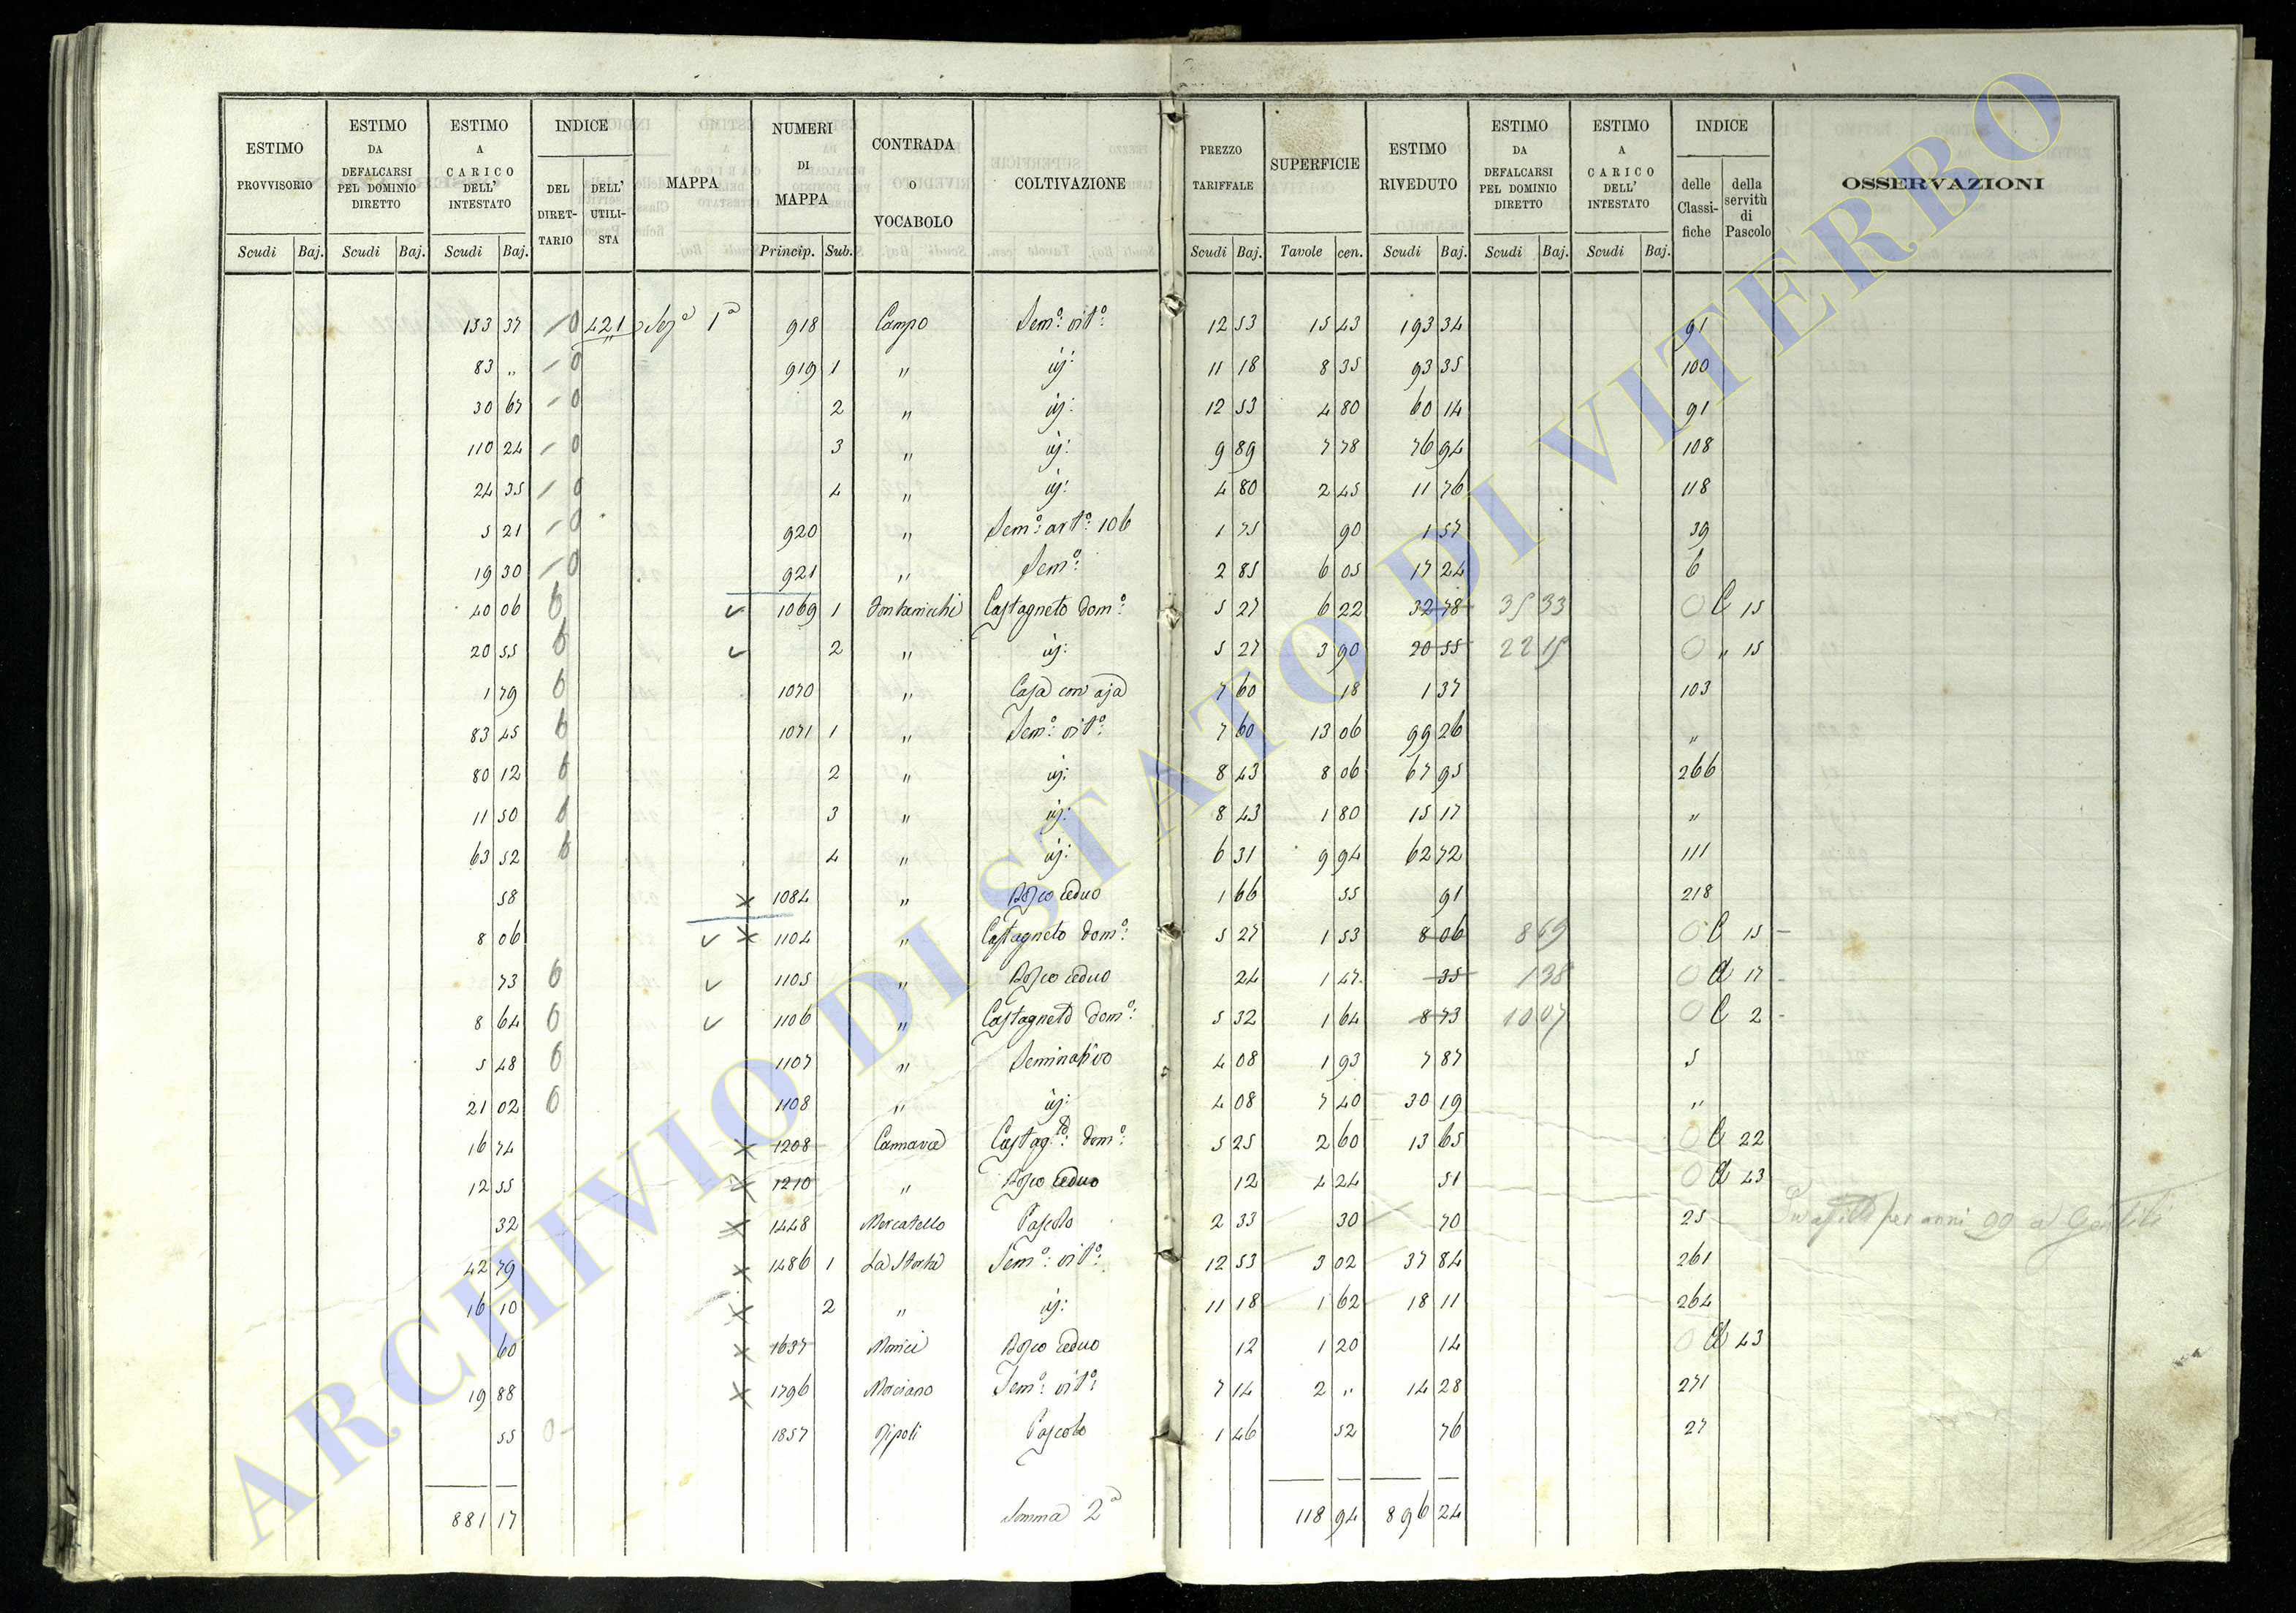 ESTIMO PROVVISORIO | ESTIMO DA DEFALCARSI PEL DOMINIO DIRETTO | ESTIMO A CARICO DELL' INTESTATO | INDICE | MAPPA | NUMERI DI MAPPA | CONTRADA O VOCABOLO | COLTIVAZIONE | PREZZO TARIFFALE | SUPERFICIE | ESTIMO RIVEDUTO | ESTIMO DA DEFALCARSI PEL DOMINIO DIRETTO | ESTIMO A CARICO DELL' INTESTATO | INDICE | OSSERVAZIONI
DEL DIRETTARIO | DELL' UTILISTA | delle Classifiche | della servitù di Pascolo
Scudi | Baj. | Scudi | Baj. | Scudi | Baj. | Princip. | Sub. | Scudi | Baj. | Tavole | cen. | Scudi | Baj. | Scudi | Baj. | Scudi | Baj.
153 37 0 421 Sezª 1ª 918 Campo Sem: vitº: 12 53 15 43 193 34 91
83 " 0 919 1 " id: 11 18 8 35 93 35 100
30 67 0 2 " id: 12 53 4 80 60 14 91
110 24 0 3 " id: 9 89 7 78 76 94 108
24 35 0 4 " id: 4 80 2 45 11 76 118
5 21 0 920 " Semº: artº: 106 1 75 90 1 57 39
19 30 0 921 " Semº: 2 85 6 05 17 24 6
40 06 0 1069 1 Castagneto domº: 5 27 6 22 32 78 35 33 0 C 15
20 55 0 2 " id: 5 27 3 90 20 55 22 15 0 " 15
1 79 0 1070 " Casa con aja 7 60 18 1 37 103
83 45 0 1071 1 " Semº: vitº: 7 60 13 06 99 26 "
80 12 0 2 " id: 8 43 8 06 67 95 266
11 50 0 3 " id: 8 43 1 80 15 17 "
63 52 0 4 " id: 6 31 9 94 62 72 111
58 1084 " Bosco ceduo 1 66 55 91 218
8 06 1104 " Castagneto domº: 5 27 1 53 8 06 8 69 0 C 15
73 0 1105 " Bosco ceduo 24 1 47 35 1 38 0 d 17
8 64 0 1106 " Castagneto domº: 5 32 1 64 8 73 10 07 0 C 2
5 48 0 1107 " Seminativo 4 08 1 93 7 87 5
21 02 0 1108 " id: 4 08 7 40 30 19 "
16 74 1208 Cannara Castagto: domº: 5 25 2 60 13 65 0 C 22
12 55 1210 " Bosco ceduo 12 4 24 51 0 d 43
32 1448 Mercatello Pascolo 2 33 30 70 25 per anni 99 a
42 79 1486 1 La Storta Semº: vitº: 12 53 3 02 37 84 261
16 10 2 " id: 11 18 1 62 18 11 264
60 1637 Bosco ceduo 12 1 20 14 0 d 43
19 88 1796 Morciano Semº: vitº: 7 14 2 " 14 28 271
55 0 1857 Ripoli Pascolo 1 46 52 76 27
881 17 Somma 2ª 118 94 896 24
ARCHIVIO DI STATO DI VITERBO